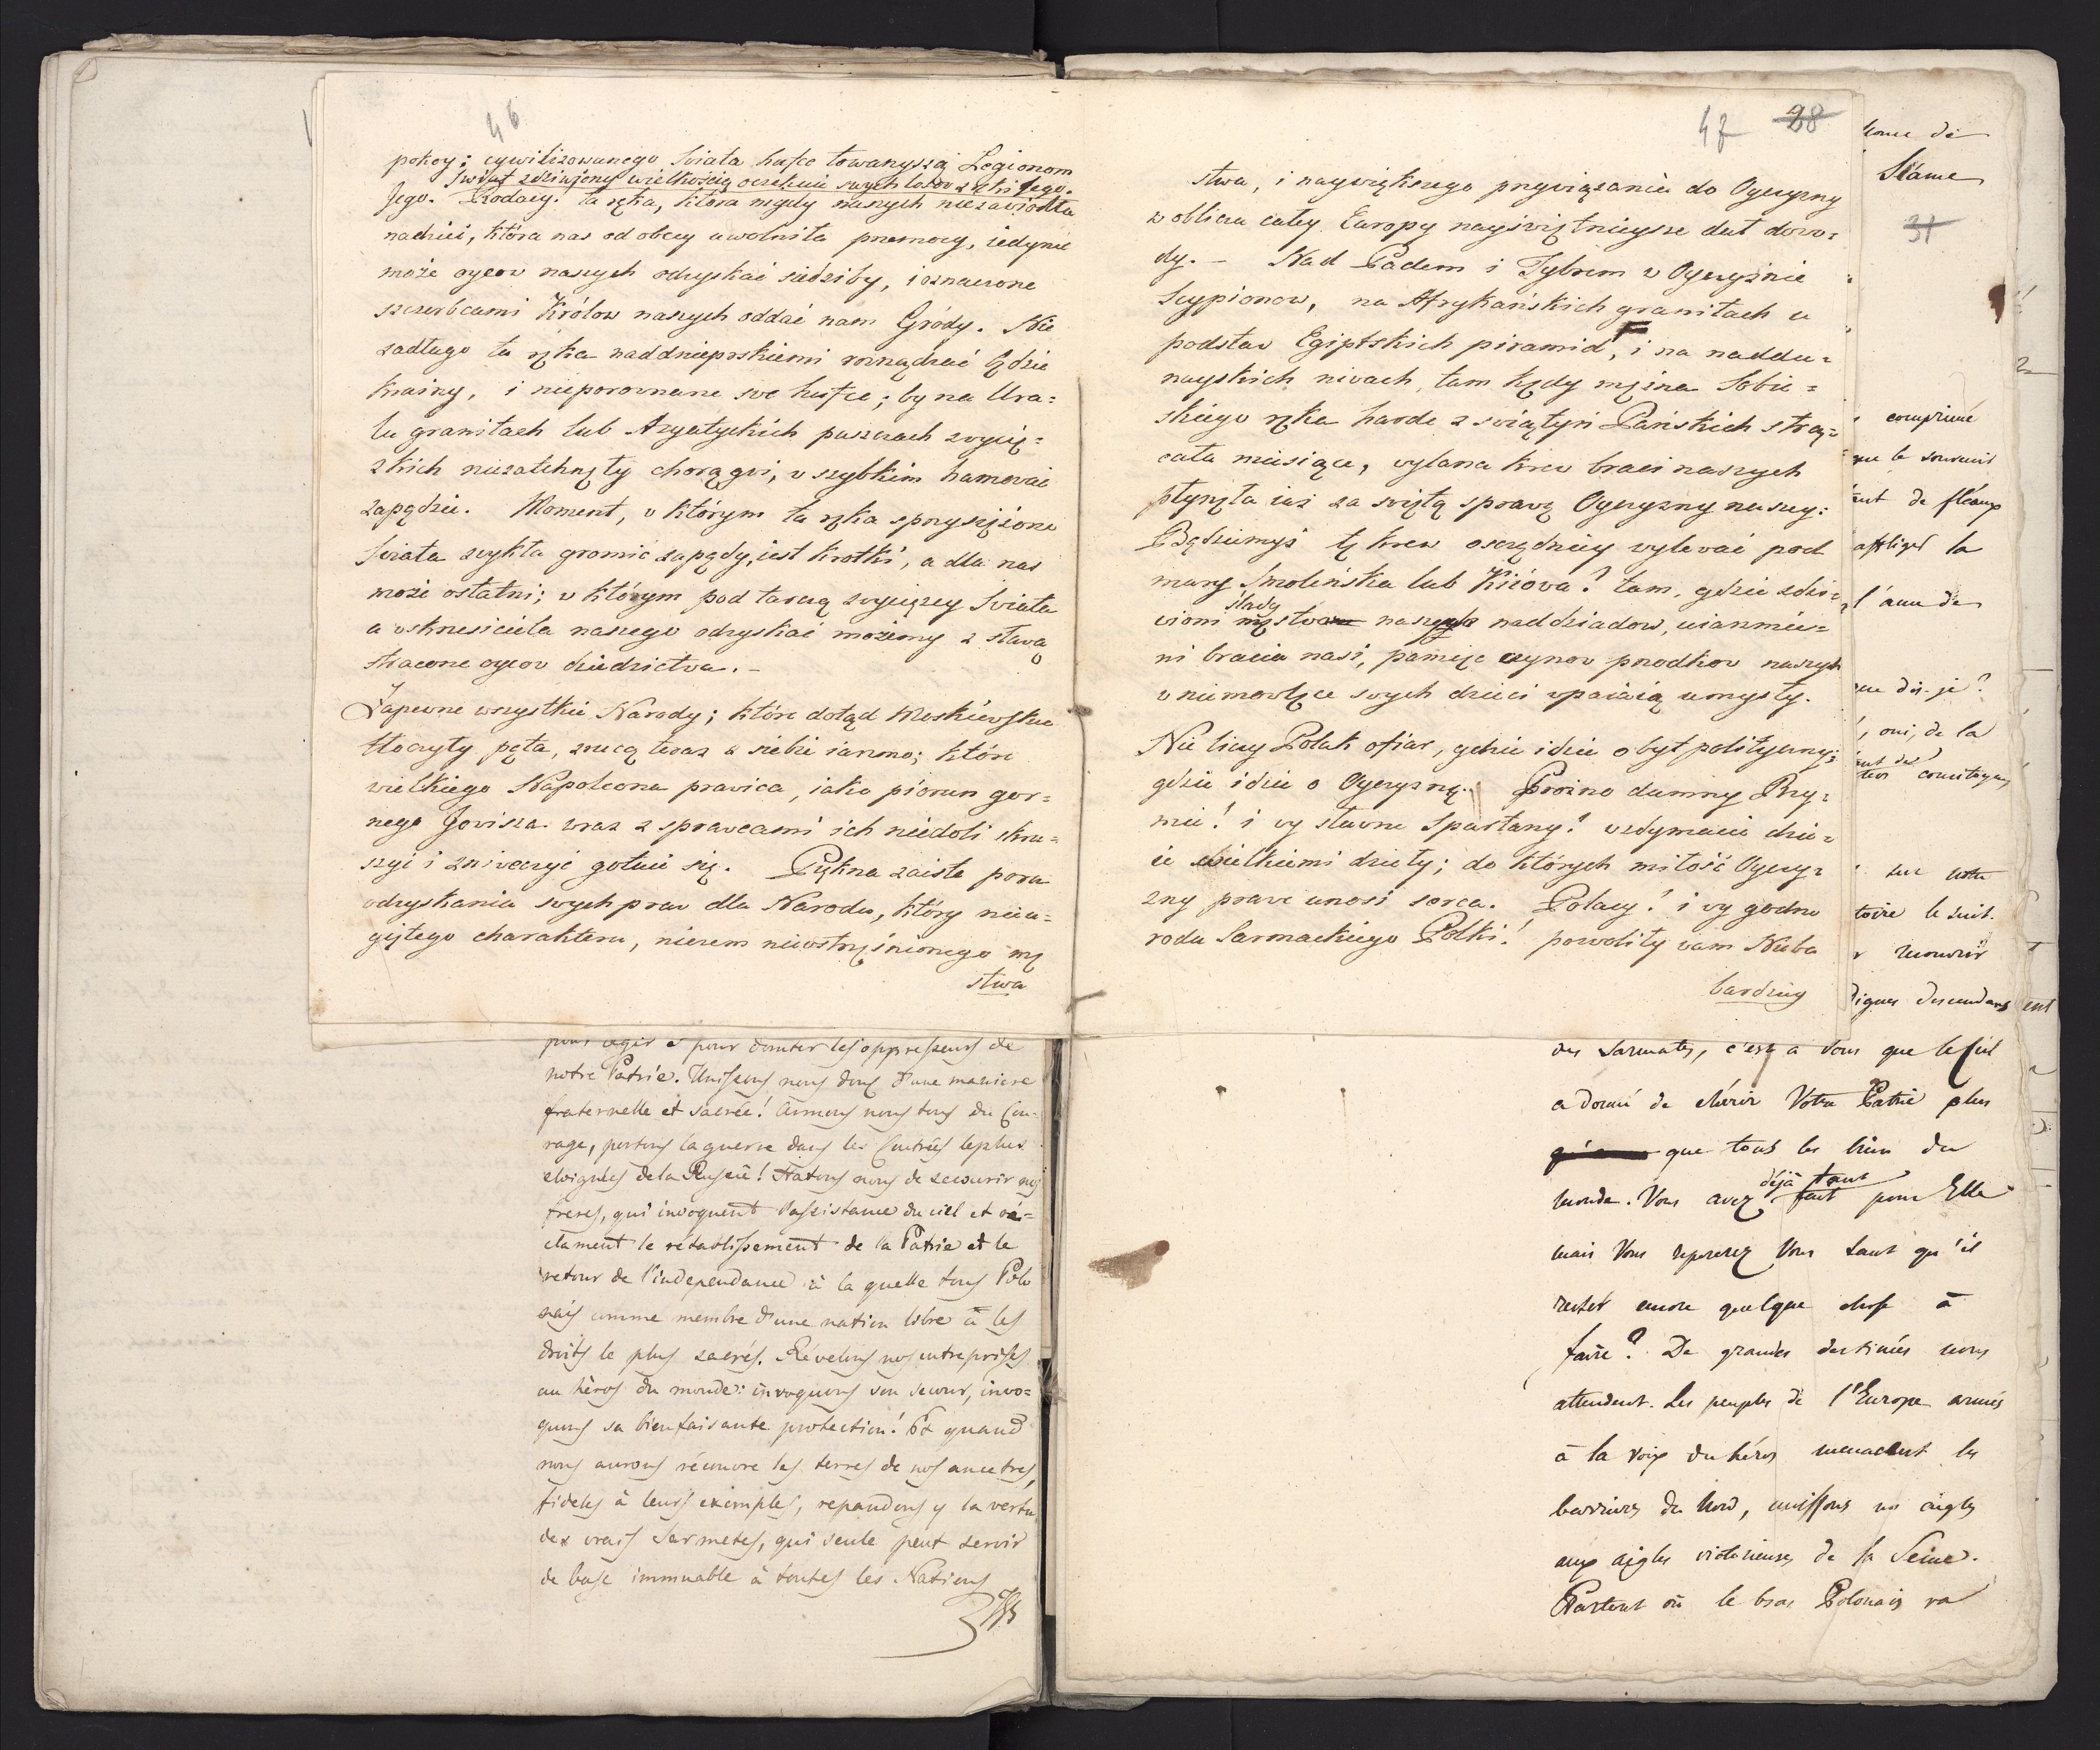 46
pokoy; cywilizowanego świata hufce towarzyszą Legionom
Świat zdziwjony wielkością oczekuie swych losow z ręki Jego.
Jego. Rodacy! ta ręka, ktora nigdy naszych niezawiodła
nadziei, która nas od obcey uwolniła przemocy, iedynie
może oycow naszych odzyskać siedziby, i oznaczone
szczerbcami Królow naszych oddać nam Gródy. Nie
zadługo ta ręka naddnieprskiemi rozrządzać będzie
krainy, i nieporownane swe hufce; by na Ura=
lu granitach lub Azyatyckich puszczach zwycię=
zkich niezatchnęły chorągwi, w szybkim hamować
zapędzie. Moment, w którym ta ręka sprzysiężone
świata zwykła gromić zapędy, iest krotki, a dla nas
może ostatni; w którym pod tarczą zwycięzcy świata
a wskrzesiciela naszego odzyskać możemy z sławą
stracone oycow dziedzictwa. –
Zapewne wszystkie Narody; które dotąd Moskiewskie
tłoczyły pęta, zrucą teraz z siebie iarzmo; które
wielkiego Napoleona prawica, iako piorun gor=
nego Jowisza wraz z sprawcami ich niedoli skru=
szyć i zniweczyć gotuie się. Piękna zaiste pora
odzyskania swych praw dla Narodu, który nieu=
giętego charakteru, niczem niewstrzęśnionego mę
stwa
47 28
stwa, i naywiększego przywiązania do Oyczyzny
w obliczu całey Europy nayświętnieysze dał dowo=
dy. – Nad Padem i Tybrem w Oyczyźnie
Scypionow, na Afrykańskich granitach u
podstaw Egiptskich piramid, i na naddu=
nayskich niwach, tam kędy mężna Sobie=
skiego ręka harde z świątyń Pańskich strąc=
cała miesiące, wylana krew braci naszych
płynęła iuż za świętą sprawę Oyczyzny naszey:
Będziemyż tę krew oszczędniey wylewać pod
mury Smoleńska lub Kiiowa? tam, gdzie zdzi=
ślady
wioni męstwa naszych naddziadow, uiarzmie=
ni bracia nasi, pamięć czynow przodkow naszych
w niemowlęce swych dzieci wpaiaią umysły.
Nie liczy Polak ofiar, gdzie idzie o byt polityczny;
gdzie idzie o Oyczyznę. Prożno dumny Rzy=
mie! i wy sławne Spartany! wzdymacie dzie=
ie wielkiemi dzieły; do których miłość Oyczy=
zny prawe unosi serca. Polacy! i wy godne
rodu Sarmackiego Polki! powoliły wam Nieba
bardziey
pour agir et pour domter les oppresseurs de
notre Patrie. Unissons nous donc d'une maniere
fraternelle et sacrée! Armons nous tous du Cou-
rage, portons la guerre dans les Contrées le plus
eloignées de la Russie! Hatons nous de secourir nos
freres, qui invoquent l'assistance du ciel et ré=
clament le retablissement de la Patrie et le
retour de l'independance à la quelle tous Polo
nais comme membre d'une nation libre a les
droits le plus sacrés. Révelons nos entreprises
au héros du monde: invoquons son secour, invo=
quons sa bienfaisante protection! Et quand
nous aurons récouvré les terres de nos ancetres,
fideles à leurs exemples, repandons y la vertu
des vrais Sarmates, qui seule peut servir
de base immuable à toutes les Nations
31
comprimé
que le souvenir
de fléaux
affligé la
l'ame de
que dis-je?
oui, de la
concitoyens
sur votre
toire le suit.
mourir
dignes descendans
des Sarmates, c'est a vous que le Ciel
a donné de chérir Votre Patrie plus
que tous les biens du
déjà tant
monde. Vous avez fait pour Elle
mais Vous reposerez Vous tant qu'il
restet encore quelque chose à
faire? De grandes destinées nous
attendent. Les peuples de l'Europe armés
à la voix du héros menacent les
barrieres du Nord, unissons nos aigles
aux aigles victorieuses de la Seine.
Partout où le bras Polonais va